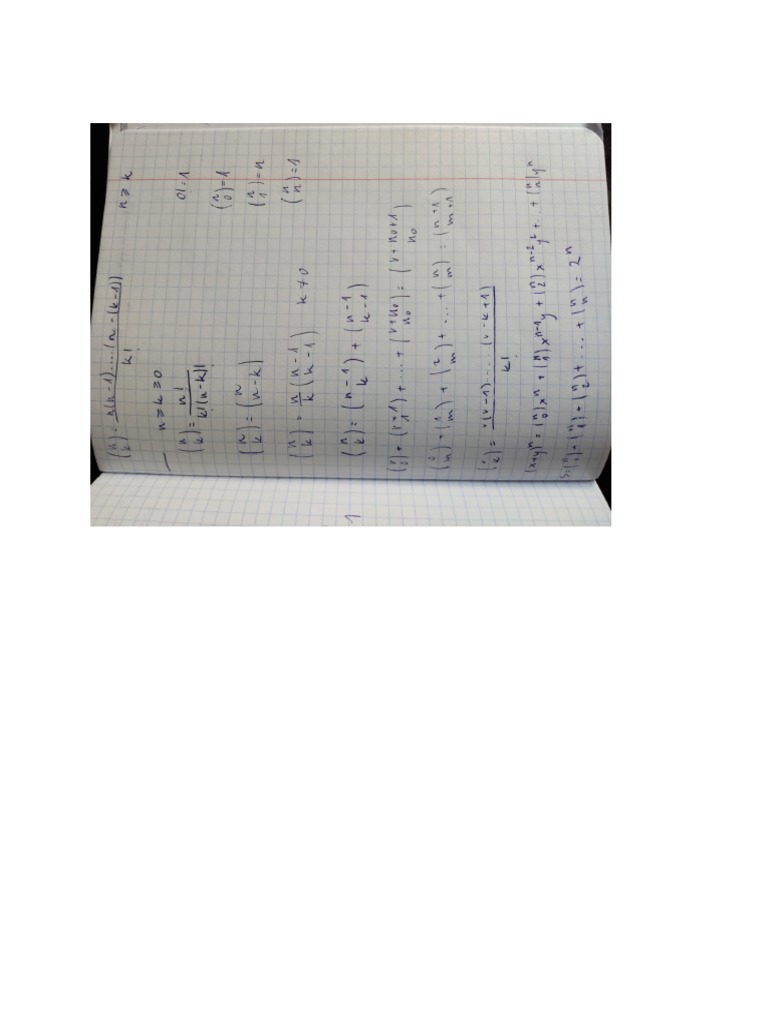 (n k) = n(n-1).....(n-(k-1)) / k!    n ≥ k
n ≥ k ≥ 0
(n k) = n! / k!(n-k)!    0! = 1
(n 0) = 1
(n k) = (n n-k)    (n 1) = n
(n k) = n/k (n-1 k-1)    k ≠ 0    (n n) = 1
(n k) = (n-1 k) + (n-1 k-1)
(r 0) + (r+1 1) + ... + (r+n₀ n₀) = (r+n₀+1 n₀)
(0 m) + (1 m) + (2 m) + ... + (n m) = (n+1 m+1)
(r k) = r(r-1)...(r-k+1) / k!
(x+y)ⁿ = (n 0)xⁿ + (n 1)xⁿ⁻¹y + (n 2)xⁿ⁻²y² + ... + (n n)yⁿ
S = (n 0) + (n 1) + (n 2) + ... + (n n) = 2ⁿ
1